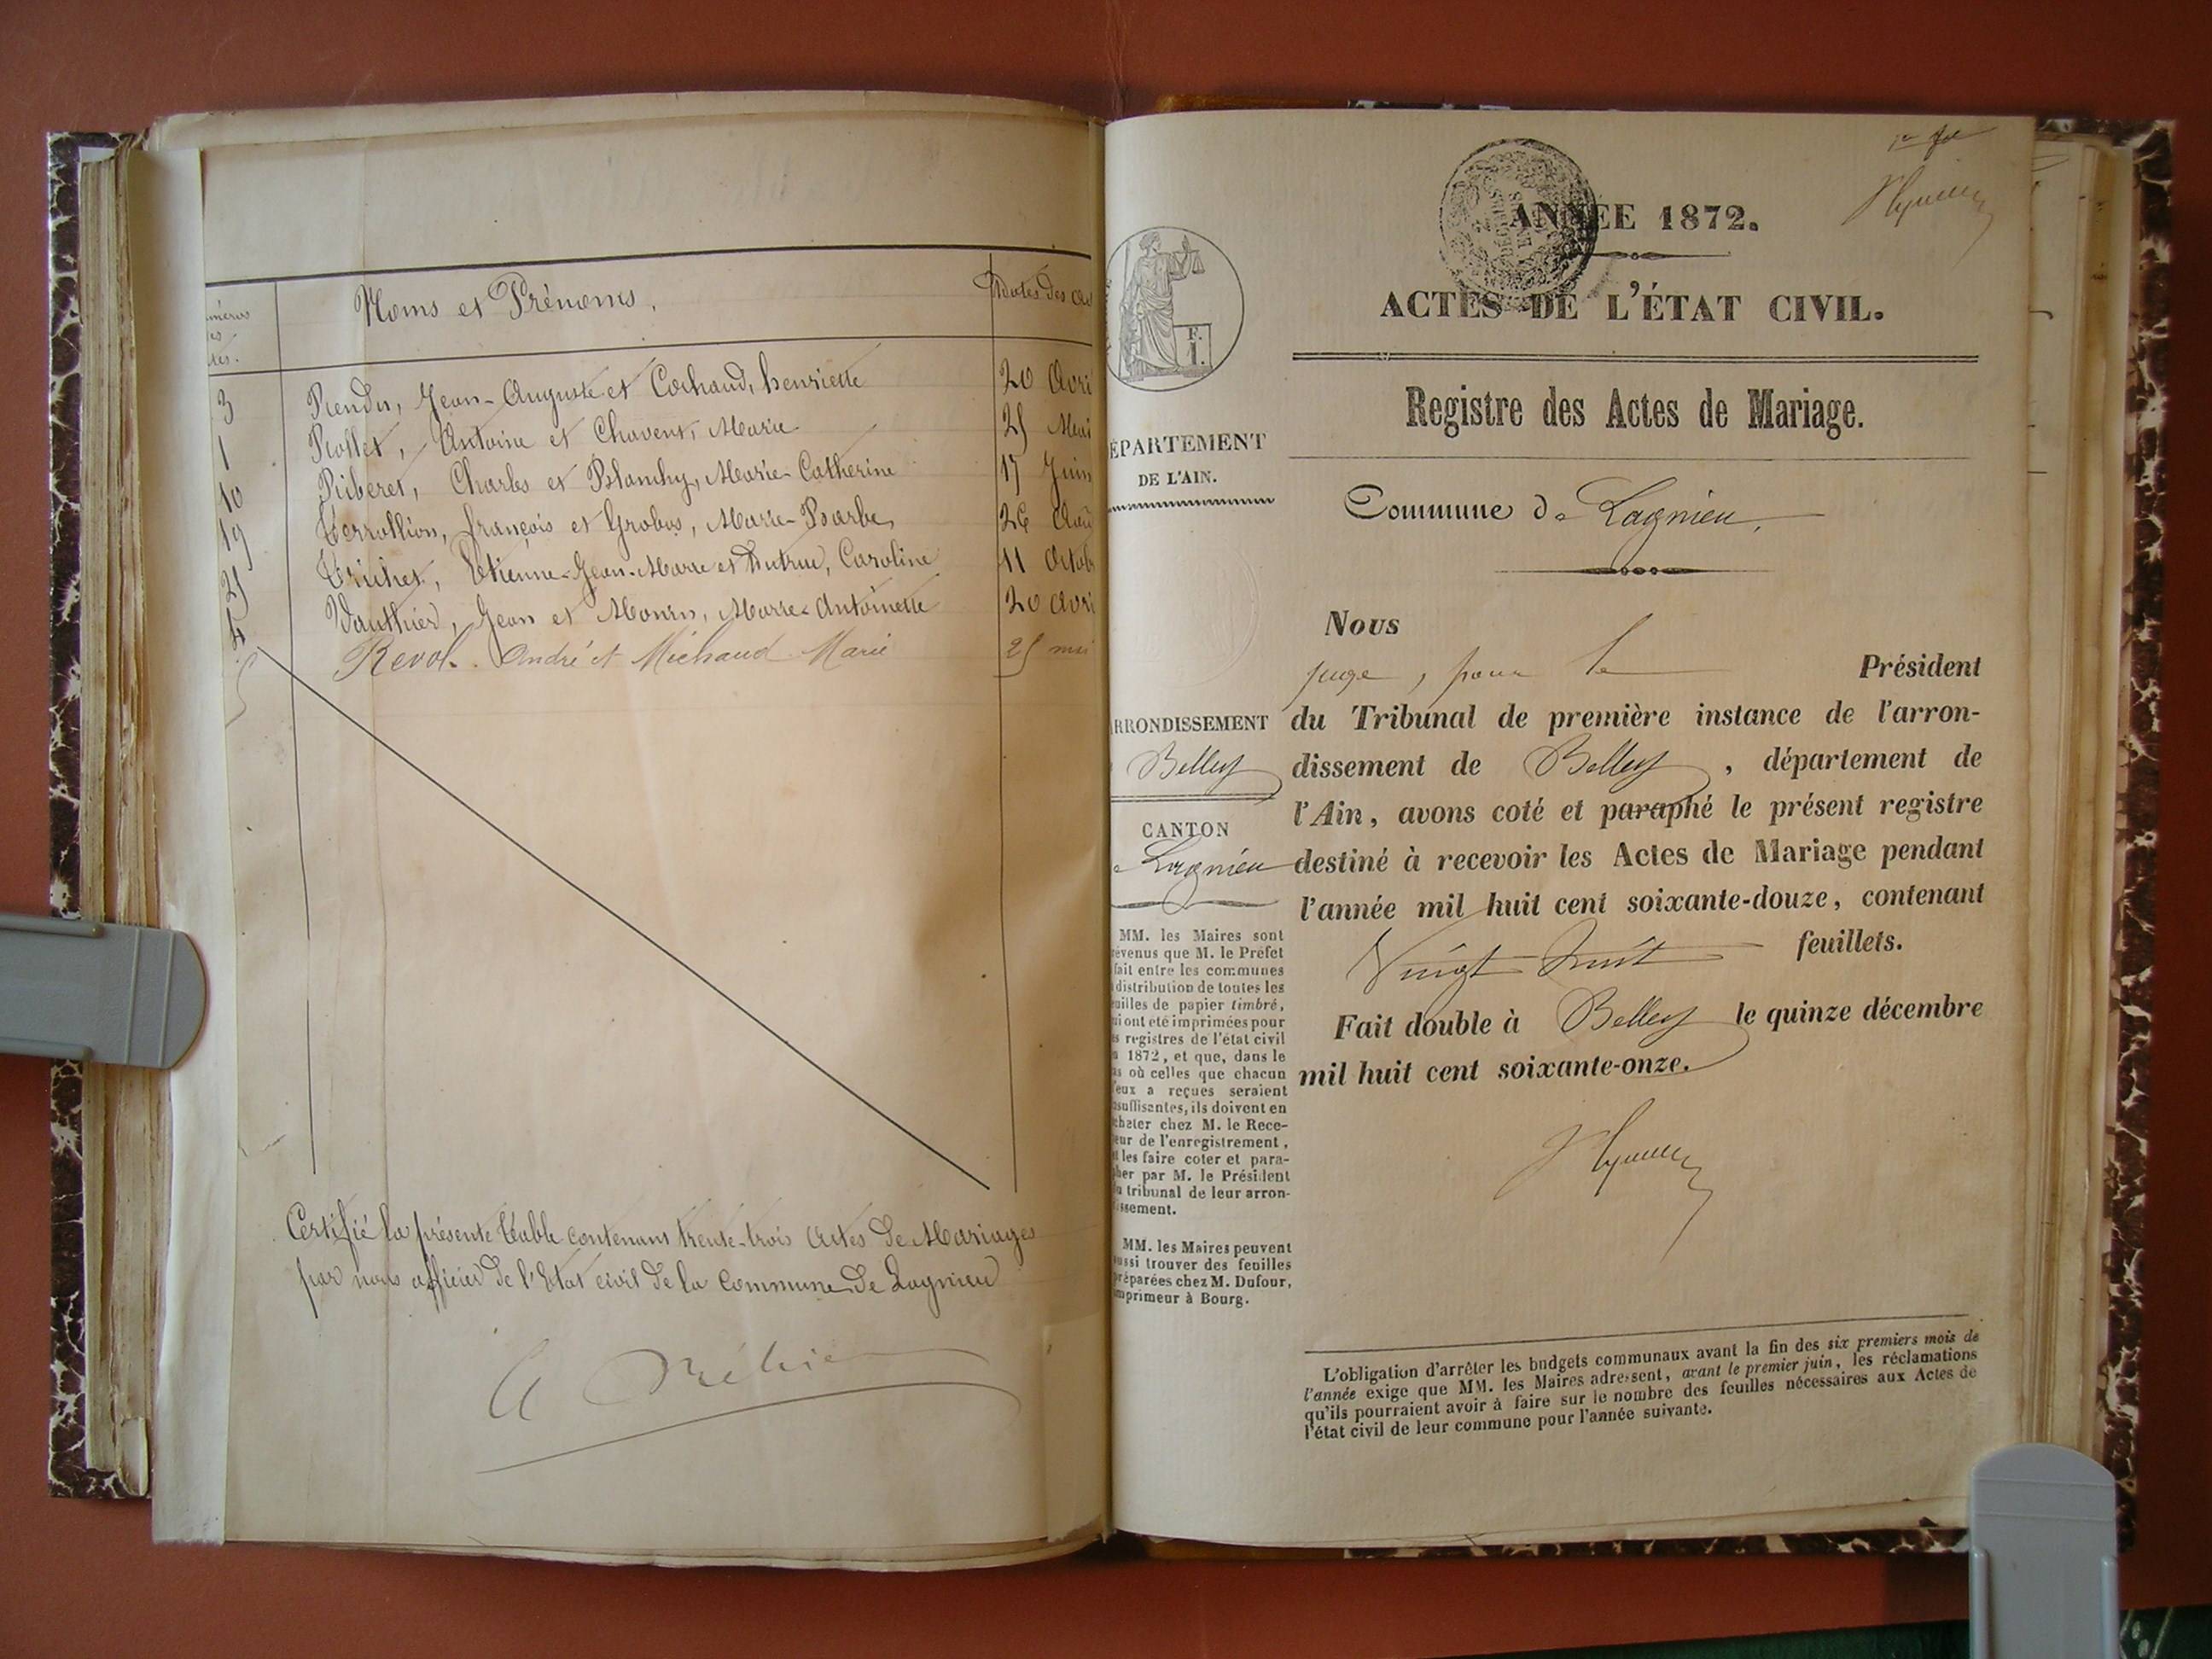 Noms et Prénoms.
Dates des
3 Rendu, Jean-Auguste et Cochaud, henriette 20 Avri
Rollet, Antoine et Chavent, Marie
10 Riberet, Charles et Blanchy, Marie-Catherine 17 Juin
19 Terrollion, françois et Grobos, Marie-Barbe 26 Aoû
Etienne-Jean-Marie et Dutrue, Caroline 11 Octob
4 Vauthier, Jean et Marie-Antoinette 20 Avri
Revol. André et Michaud Marie
Certifié la présente Table contenant trente-trois Actes de Mariages
par nous officier de l'Etat civil de la Commune de Lagnieu
ANNÉE 1872.
ACTES DE L'ÉTAT CIVIL.
Registre des Actes de Mariage.
Commune de Lagnieu.
ÉPARTEMENT
DE L'AIN.
F.
1.
RRONDISSEMENT
Belley
CANTON
Lagnieu
MM. les Maires sont
évenus que M. le Préfet
fait entre les communes
distribution de toutes les
uilles de papier timbré,
ui ont été imprimées pour
s registres de l'état civil
1872, et que, dans le
as où celles que chacun
'eux a reçues seraient
nsuffisantes, ils doivent en
cheter chez M. le Rece-
eur de l'enregistrement,
t les faire coter et para-
her par M. le Président
u tribunal de leur arron-
issement.
MM. les Maires peuvent
ussi trouver des feuilles
réparées chez M. Dufour,
mprimeur à Bourg.
Nous
juge, pour le Président
du Tribunal de première instance de l'arron-
dissement de Belley, département de
l'Ain, avons coté et paraphé le présent registre
destiné à recevoir les Actes de Mariage pendant
l'année mil huit cent soixante-douze, contenant
Vingt huit feuillets.
Fait double à Belley le quinze décembre
mil huit cent soixante-onze.
L'obligation d'arrêter les budgets communaux avant la fin des six premiers mois de
l'année exige que MM. les Maires adressent, avant le premier juin, les réclamations
qu'ils pourraient avoir à faire sur le nombre des feuilles nécessaires aux Actes de
l'état civil de leur commune pour l'année suivante.